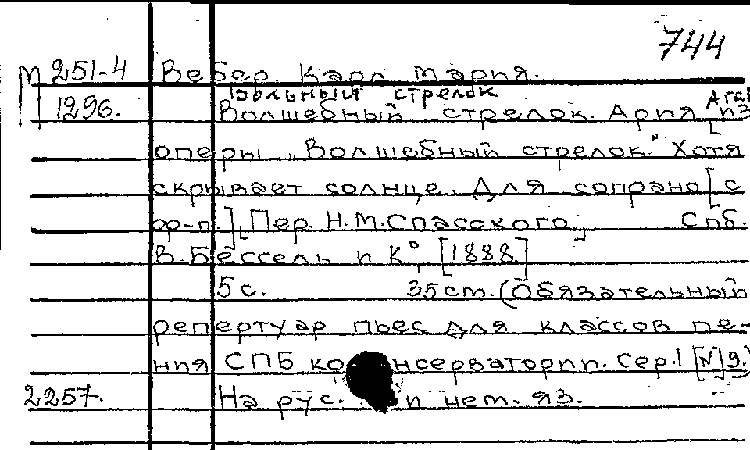 744
М 251-4 Вебер Карл Мария.
Вольный стрелок
1296. Волшебный стрелок. Ария [из
оперы „Волшебный стрелок." Хотя
скрывает солнце. Для сопрано [с
ф-п.], [Пер. Н.М. Спасского] Спб.
В. Бессель и К°, [1888]
5 с. 35 cm. (Обязательный
репертуар пьес для классов пе-
ния СПБ консерватории. Сер. 1 [№] 9.)
2257. На рус. и нем. яз.